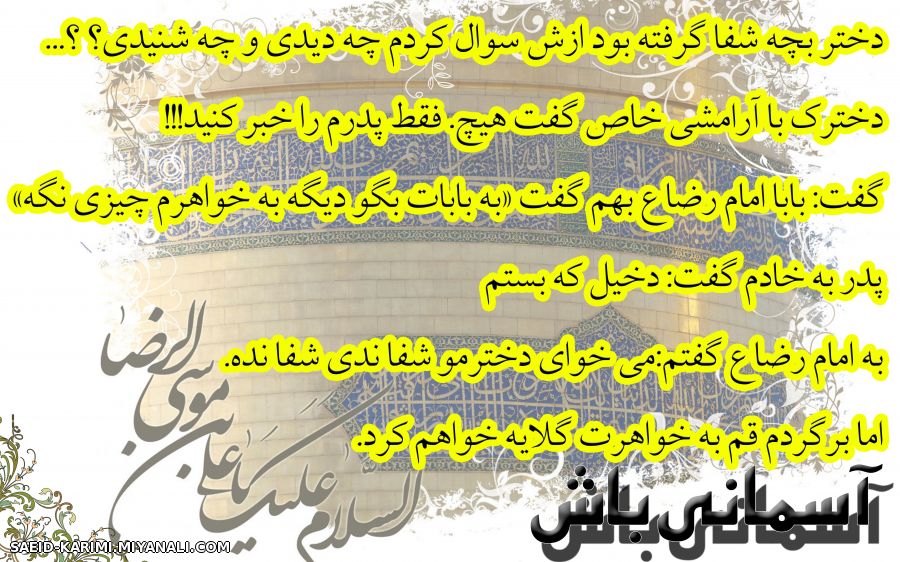 دختر بچه شفا گرفته بود ازش سوال کردم چه دیدی و چه شنیدی؟ ؟...
دخترک با آرامشی خاص گفت هیچ. فقط پدرم را خبر کنید!!!
گفت: بابا امام رضا ع بهم گفت «به بابات بگو دیگه به خواهرم چیزی نگه»
پدر به خادم گفت: دخیل که بستم
به امام رضا ع گفتم:می خوای دخترمو شفا ندی شفا نده.
اما برگردم قم به خواهرت گلایه خواهم کرد.
آسمانی باش
السلام علیک یا علی بن موسی الرضا
SAEID-KARIMI-MIYANALI.COM